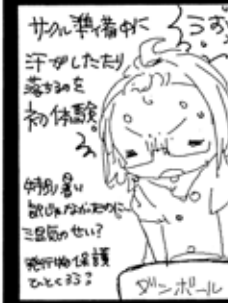 サークル準備中に
汗がしたたり
落ちるのを
初体験。
特別暑い
訳じゃなかったのに…
湿気のせい?
発行物保護
ダンボール